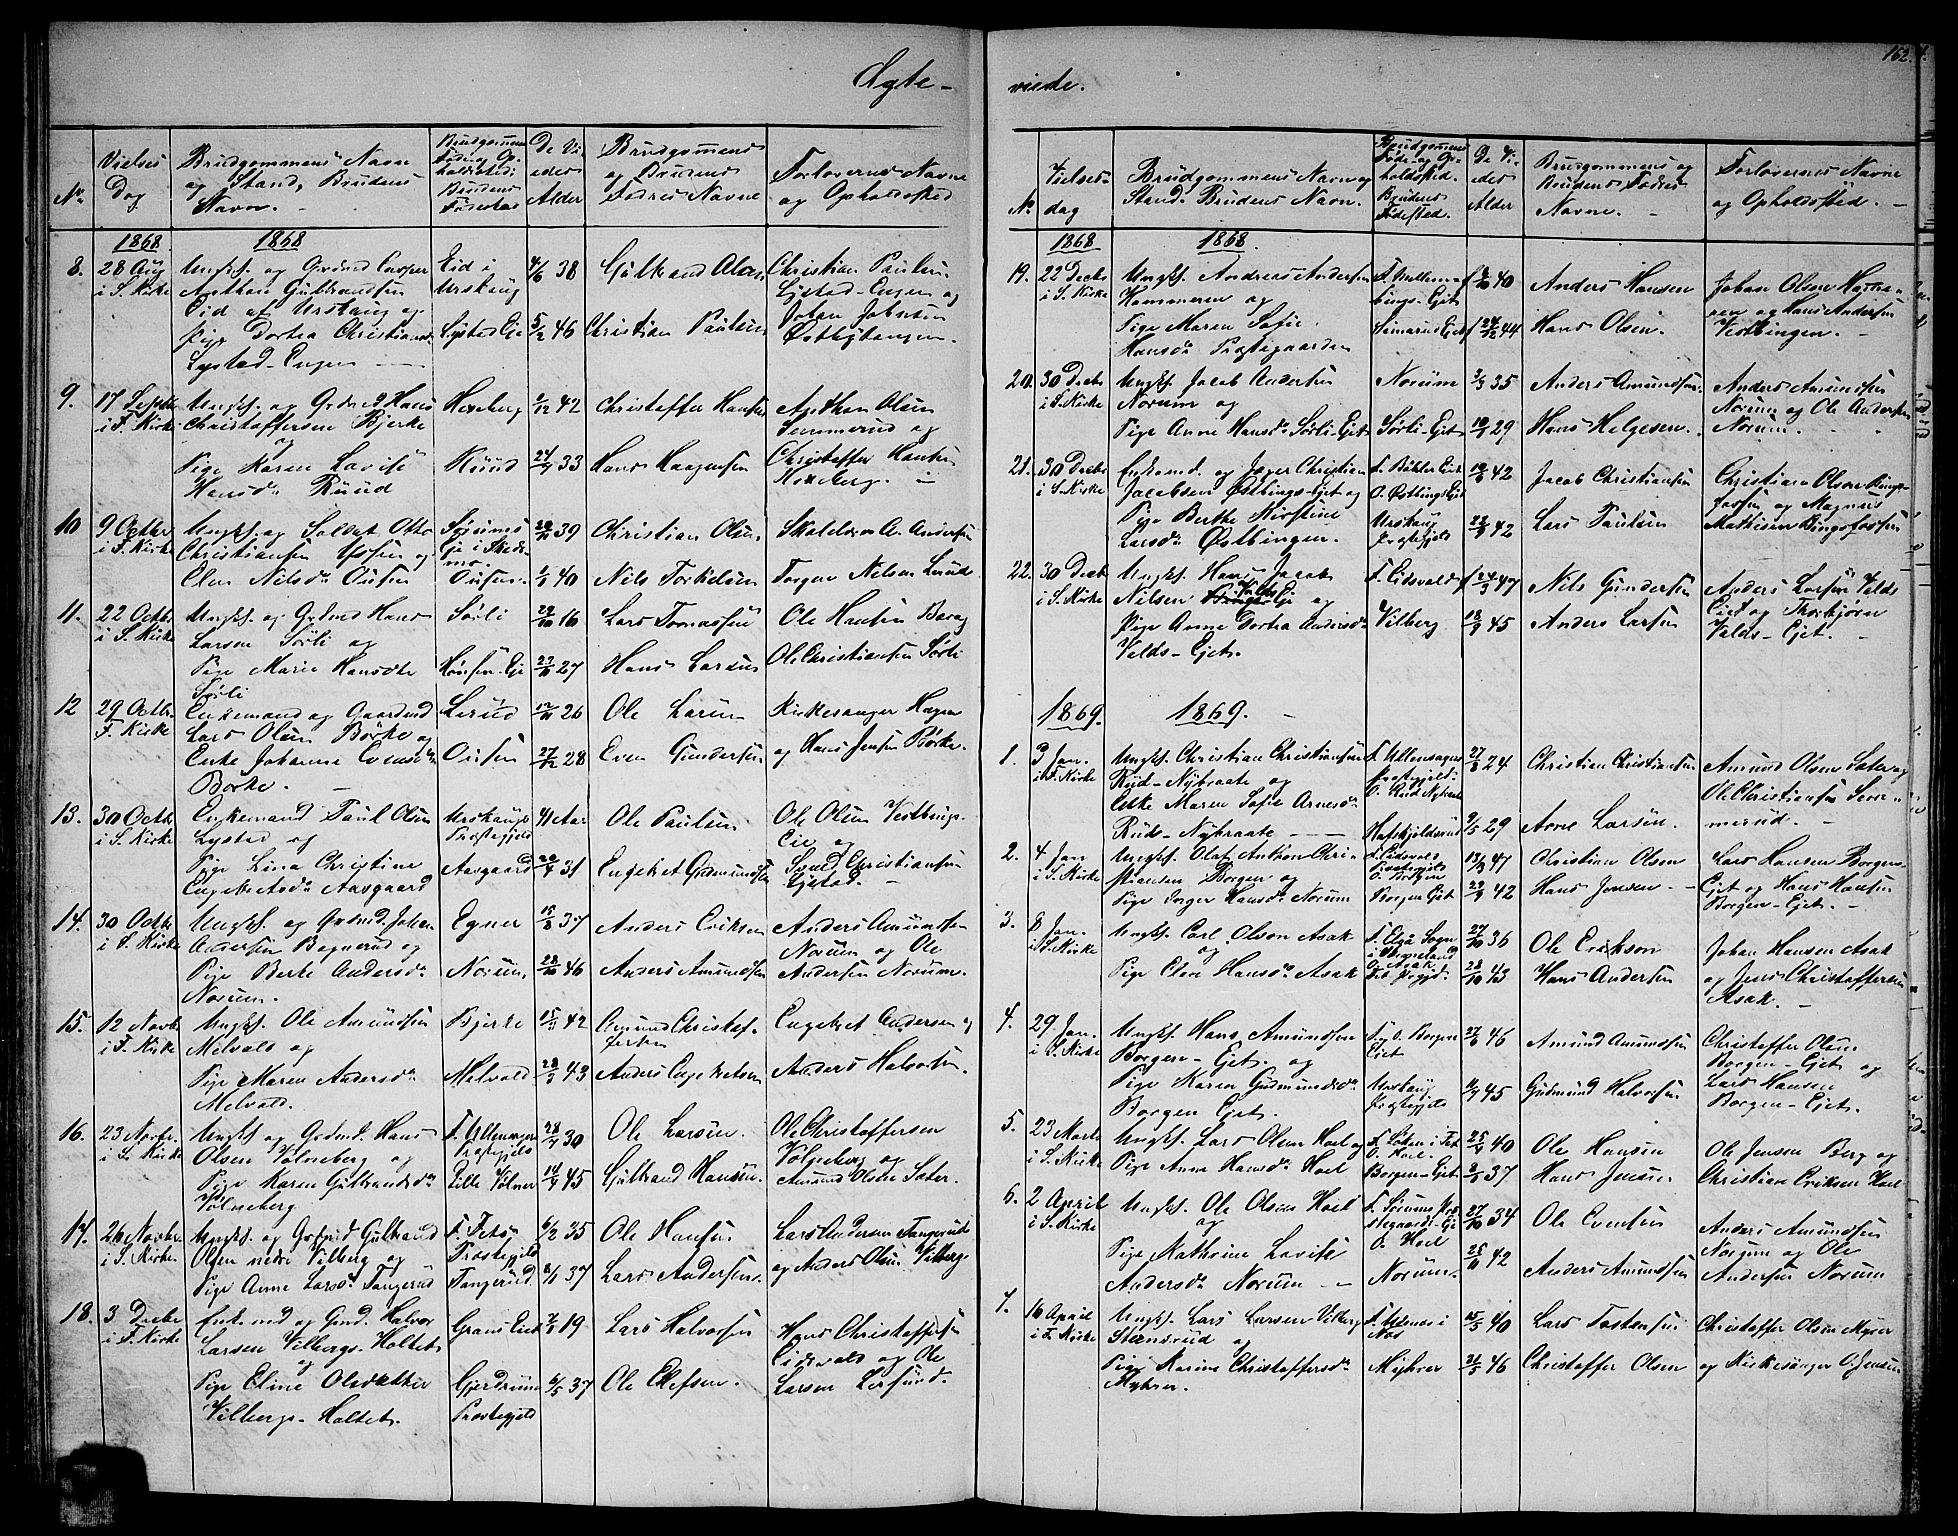 162.
Ægte-
No
Vielses
Dag
Brudgommens Navn
og Stand, Brudens
Navn.
Brudgommens
Føde og Op-
holdsted;
Brudens
Fødested
De Vi-
edes
Alder
Brudgommens
og Brudens
Fædres Navne
Forlovernes Navne
og Opholdssted
1868 1868
8. 28 Aug
i S. Kirke
Ungk. og Grdmd Casper
Agthon Gulbrandsen
Eid af Urskoug og
Pige Dortea Christiansd
Lystad-Engen
Eid i
Urskoug
Lystad Eje
4/6 38
5/2 46
Gulbrand Olsen
Christian Paulsen
Christian Paulsen
Lystad-Engen og
Johan Johnsen
Østbybangen.
9. 17 Septbr
i F. Kirke
Ungk. og Grdmd Hans
Christoffersen Bjerke
og
Pige Karen Lovise
Hansdr Ruud
Hexeberg
Ruud
2/12 42
24/7 33
Christoffer Hansen
Hans Haagensen
Agthon Olsen
Sommerud og
Christoffer Hansen
Hexeberg.
10 9 Octbr
i F. Kirke
Ungk. og Soldat Otto
Christiansen Ousen og
Elen Nilsdr Ousen
Sørsimes
Eje i Skeds-
mo.
Ousen.
39
40
Christian Olsen
Nils Torkelsen
Skoleholder A. Andersen
Torger Nilsen Lerud
11. 22 Octbr
i S. Kirke
Ungk. og Grdmd Hans
Larsen Sørli og
Pige Marie Hansdtr
Sørli
Sørli
Hønsen-Eje
29/10 16
27/11 27
Lars Tomassen
Hans Larsen
Ole Hansen Berg
Ole Christiansen Sørli
12 29 Octbr.
F. Kirke
Enkemand og Gaardmd
Lars Olsen Børke og
Enke Johanne Evensdr
Børke.
Lerud
Ousen
17/11 26
27/12 28
Ole Larsen
Even Gundersen
Kirkesanger Hagen
og Hans Jensen Børke.
13. 30 Octbr
i S. Kirke
Enkemand Paul Olsen
Lystad og
Pige Lina Christine
Engebretsdr Aavgaard
Urskougs
Præstegjeld
Aavgaard
41 Aar
20/4 31
Ole Paulsen
Engebret Gudmundsen
Ole Olsen Vestbings-
Eie og
Svend Christiansen
Lystad.
14. 30 Octbr
i S. Kirke
Ungk. og Grdmd. Johan
Andersen Bognerud og
Pige Berte Andersdr
Norum.
Egner
Norum
15/8 37
28/10 46
Anders Eriksen
Anders Amundsen
Anders Amundsen
Norum og Ole
Andersen Norum.
15. 12 Novbr
i F. Kirke
Ungk. Ole Amundsen
Melvald og
Pige Maren Andersdr
Melvald.
Bjerke
Melvald
15/11 42
28/3 43
Amund Christof-
fersen
Anders Engebretsen
Engebret Andersen og
Anders Halvorsen.
16. 23 Novbr.
i S. Kirke
Ungk. og Grdmd. Hans
Olsen Volneberg og
Pige Karen Gulbrandsdr
Volneberg
F. Ullensager
Præstegjeld
Lille Volner
28/7 30
14/9 45
Ole Larsen.
Gulbrand Hansen.
Ole Christoffersen
Volneberg og
Amund Olsen Sæter.
17. 26 Novbr
i S. Kirke
Ungk. og Grdmd Gulbrand
Olsen nedre Vilberg og
Pige Anne Larsdr Tangerud
F. Fetsø
Præstegjeld
Tangerud.
6/2 35
8/1 37
Ole Hansen
Lars Andersen
Lars Andersen Tangerud
og Anders Olsen Vilberg
18. 3 Decbr
i F. Kirke
Enkemd og Gmd. Halvor
Larsen Vilbergs-Holtet
og
Pige Eline Olsdatter
Vilbergs-Holtet.
Grans Eiet
Gjerdrum
Præstegjeld
7/8 19
6/5 37
Lars Halvorsen
Ole Olefsen.
Hans Christoffersen
Eidsvold og Ole
Larsen Lersund.
viede.
No.
Vielses-
dag
Brudgommens Navn og
Stand. Brudens Navn.
Brudgommens
Føde- og Op-
holdsted.
Brudens
Fødested.
De Vi-
edes
Alder
Brudgommens og
Brudens Fædres
Navne.
Forlovernes Navne
og Opholdssted.
1868 1868.
19. 22 Decbr
i S. Kirke
Ungk. Andreas Andersen
Hammeren og
Pige Maren Sofie
Hansdr Præstegaarden
bings-Ejet
Ejet
40
24/12 44
Anders Hansen
Hans Olsen.
Johan Olsen Hamme-
ren og Hans Andersen
Vestbingen.
20. 30 Decbr
i S. Kirke
Ungk. Jacob Andersen
Norum og
Pige Anne Hansdr Sørli-Ejet
Norum
Sørli-Ejet
3/3 35
19/1 29
Anders Amundsen.
Hans Helgesen.
Anders Amundsen
Norum og Ole Andersen
Norum.
21. 30 Decbr
i S. Kirke
Enkemd. og Jæger Christian
Jacobsen Østbings-Ejet og
Pige Berthe Kirstine
Larsdr Østbingen.
F. Bøhler Eiet
O. Østbings Ejet
Urskoug
Præstegjeld
19/6 42
42
Jacob Christiansen
Lars Paulsen
Christian Olsen Bings-
fossen og Magnus
Mathisen Bingsfossen
22. 30 Decbr
i S. Kirke
Ungk. Hans Jacob
Nilsen Valds Eje og
Pige Anne Dortea Andersdr
Valds-Ejet.
F. Eidsvold
Vilberg
24/3 47
18/9 45
Nils Gundersen
Anders Larsen
Anders Larsen Valds
Ejet og Thorbjørn
Valds-Ejet.
1869. 1869.
1. 3 Jan.
i F. Kirke
Ungk. Christian Christiansen
Rud-Nybraate og
Enke Maren Sofie Arnesdr
Rud-Nybraate
F. Ullensager
Præstegjeld.
O. Rud Nybraate
Hafskjoldsrud
27/8 24
9/5 29
Christian Christiansen
Arne Larsen.
Amund Olsen Sæter og
Ole Christiansen Som-
merud.
2. 4 Jan
i S. Kirke
Ungk. Olaf Anton Chri-
stiansen Borgen og
Pige Inger Hansdr Norum
F. Eidsvolds
Præstegjeld
O. Borgen
Borgen Ejet
13/3 47
29/9 42
Christian Olsen
Hans Jensen
Lars Hansen Borgen-
Ejet og Hans Hansen
Borgen-Ejet.
3. 8 Jan.
i S. Kirke
Ungk. Carl Olson Asak
og
Pige Elen Hansdr Asak
F. Elgå Sogn
i Vermeland
O. Asak
Fet Prgjd.
27/10 36
28/10 43
Ole Erikson
Hans Andersen
Johan Hansen Asak
og Jens Christoffersen
Asak.
4. 29. Jan.
i S. Kirke
Ungk. Hans Amundsen
Borgen-Ejet. og
Pige Karen Gudmundsdr
Borgen Ejet.
F. og O. Borgen
Ejet
Urskoug
Præstegjeld
27/6 46
45
Amund Amundsen
Gudmund Halvorsen
Christoffer Olsen
Borgen-Ejet og
Lars Hansen
Borgen-Ejet.
5. 23 Marts
i S. Kirke
Ungk. Lars Olsen Hoel og
Pige Anne Hansdr Hoel
F. Løken i Fet
O. Hoel.
Borgen-Ejet
25/9 40
37
Ole Hansen
Hans Jensen.
Ole Jensen Berg og
Christian Eriksen Hoel
6. 2 April
i S. Kirke
Ungk. Ole Olsen Hoel
og
Pige Kathrine Lovise
Andersdr Norum
F. Sørums Præ-
stegaards-Eje
O. Hoel
Norum.
27/10 34
25/11 42
Ole Evensen
Anders Amundsen
Anders Amundsen
Norum og Ole
Andersen Norum
7. 16 April
i F. Kirke
Ungk. Lars Larsen Vilberg
Steensrud og
Pige Karine Christoffersdr
Myhrer.
F. Udenes i
Nes
Myhrer
15/5 40
21/5 46
Lars Tostensen
Christoffer Olsen
Christoffer Olsen Myrer
og Kirkesanger O. Jensen